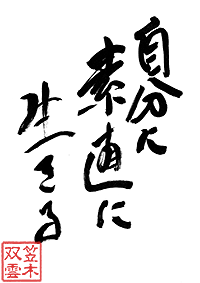 自分に
素直に
生きる
笠木
双雲